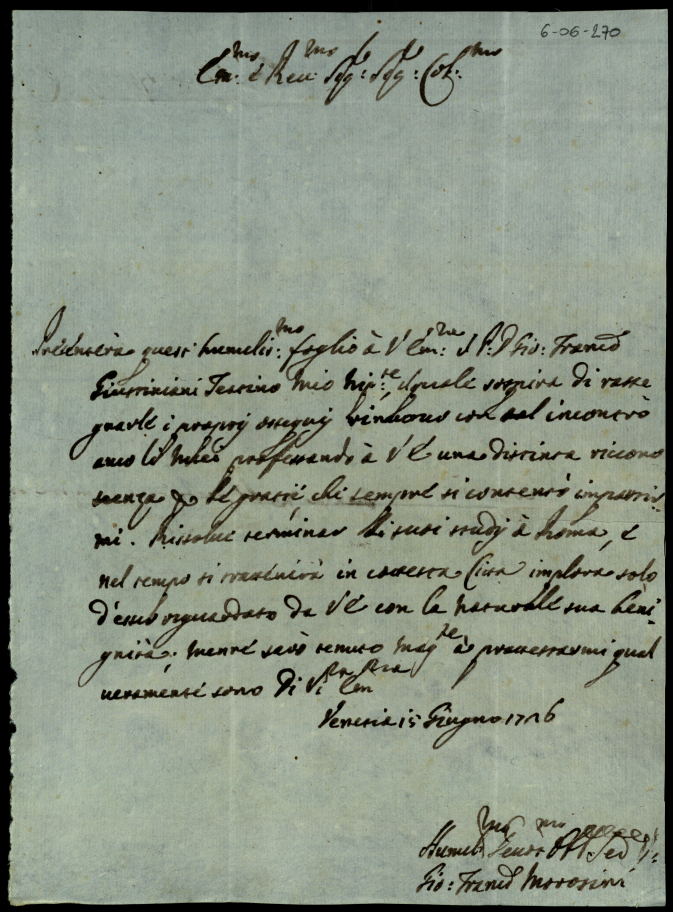 6-06-270
Em:mo e Reu:mo Sig: Sig: Col:mo
Presenterà questo humiliss:mo foglio à V Em:za il P: D Gio: Franco
Giustiniani Teatino mio Nip:te, il quale sospira di rasse
gnarle i proprij ossequij
anco li miei professando à V E una distinta ricono
scenza p le gratie che sempre si contentò impartir
mi. Risolue terminar li suoi studij à Roma, e
nel tempo si tratenirà in cotesta Città implora solo
d'esser riguardato da V E con la naturale sua beni
gnità; mentre sarò tenuto mag:te à protestarmi qual
ueramente sono Di V:ra Em:za
Venetia 15 Giugno 1726
Humil:mo Deuot:mo
Gio: Franco Morosini